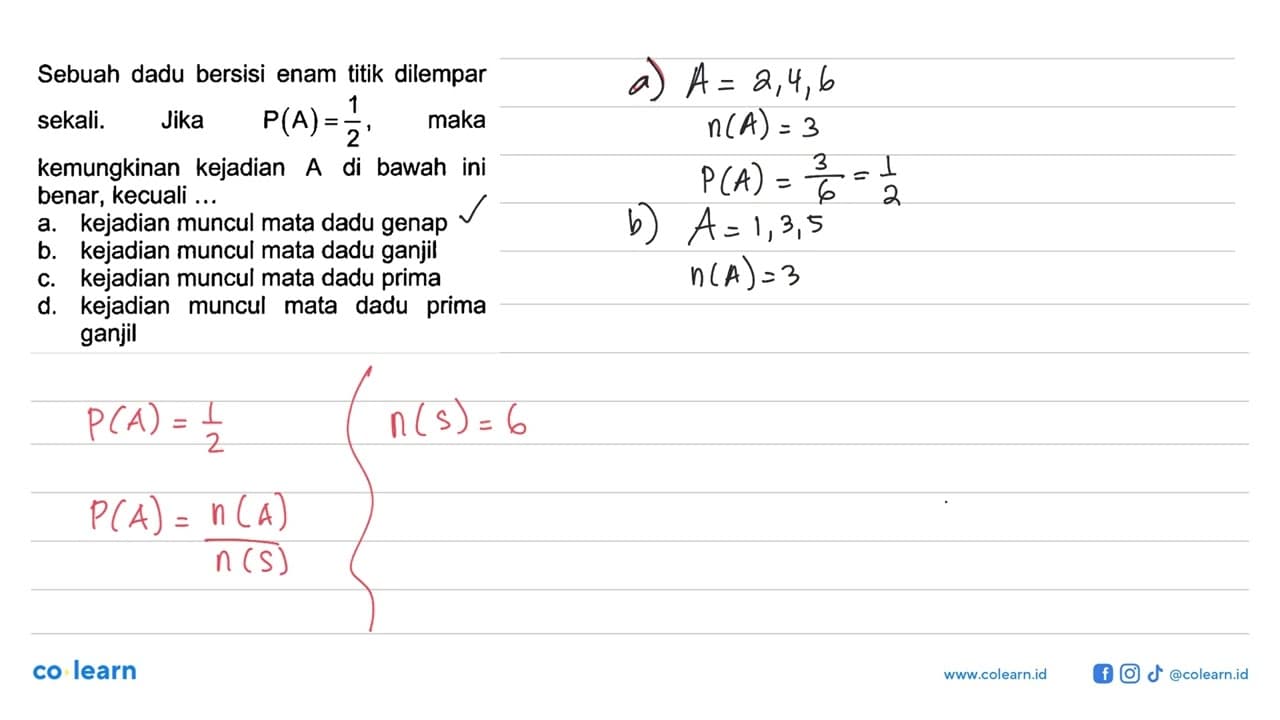 Sebuah dadu bersisi enam titik dilempar
sekali. Jika P(A) = 1/2, maka
kemungkinan kejadian A di bawah ini
benar, kecuali ...
a. kejadian muncul mata dadu genap ✓
b. kejadian muncul mata dadu ganjil
c. kejadian muncul mata dadu prima
d. kejadian muncul mata dadu prima
ganjil
a) A = 2,4,6
n(A) = 3
P(A) = 3/6 = 1/2
b) A = 1,3,5
n(A) = 3
P(A) = 1/2
P(A) = n(A)/n(S)
n(S) = 6
co learn
www.colearn.id
@colearn.id